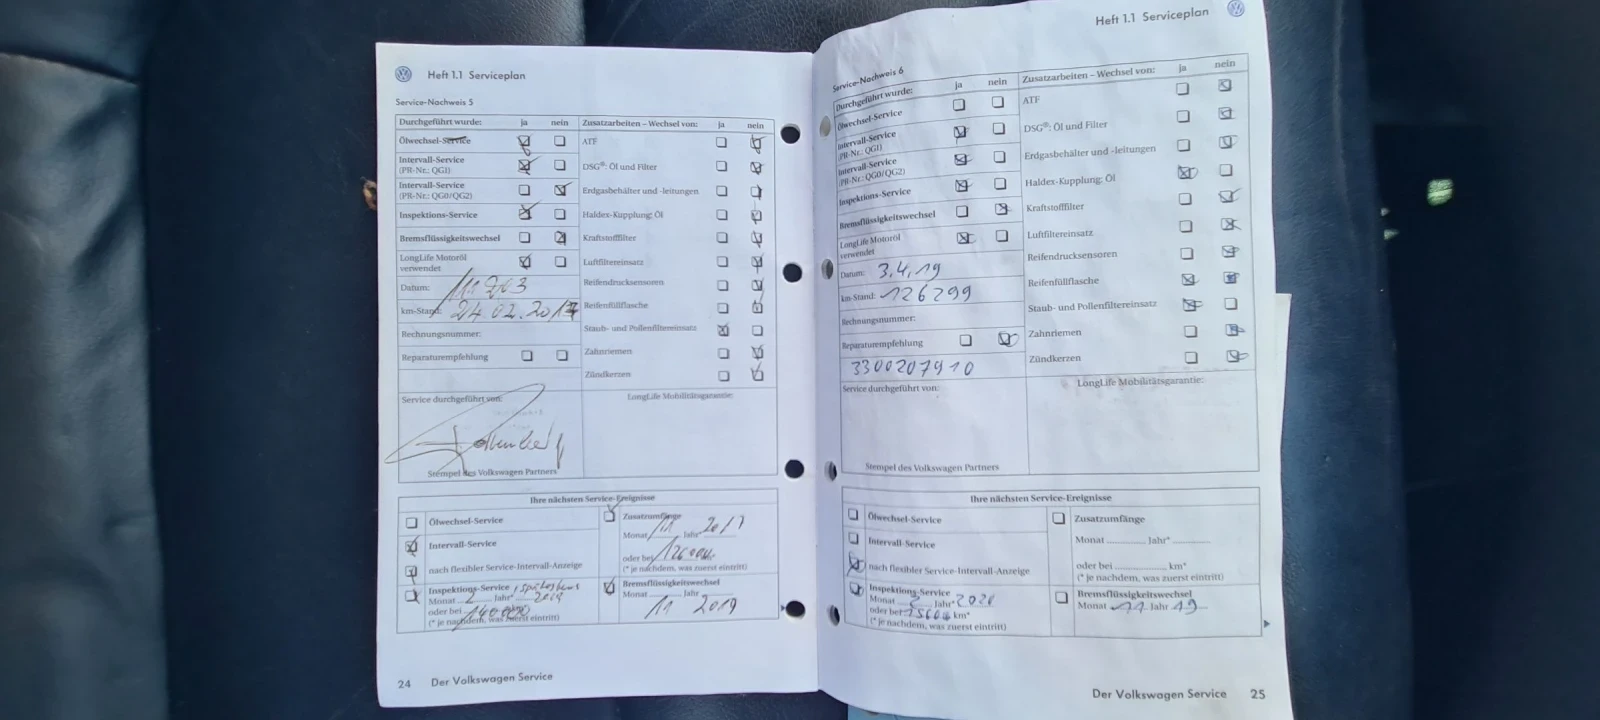 Heft 1.1 Serviceplan
Service-Nachweis 5
Durchgeführt wurde: ja nein
Ölwechsel-Service
Intervall-Service
(PR-Nr.: QG1)
Intervall-Service
(PR-Nr.: QG0/QG2)
Inspektions-Service
Bremsflüssigkeitswechsel
LongLife Motoröl
verwendet
Datum:
km-Stand: 24.02.2017
Rechnungsnummer:
Reparaturempfehlung
Zusatzarbeiten – Wechsel von: ja nein
ATF
DSG®: Öl und Filter
Erdgasbehälter und -leitungen
Haldex-Kupplung: Öl
Kraftstofffilter
Luftfiltereinsatz
Reifendrucksensoren
Reifenfüllflasche
Staub- und Pollenfiltereinsatz
Zahnriemen
Zündkerzen
Service durchgeführt von:
Stempel des Volkswagen Partners
LongLife Mobilitätsgarantie:
Ihre nächsten Service-Ereignisse
Ölwechsel-Service
Intervall-Service
nach flexibler Service-Intervall-Anzeige
Inspektions-Service, spätestens
Monat 2 Jahr* 2019
oder bei 140000 km*
(* je nachdem, was zuerst eintritt)
Zusatzumfänge
Monat 11 Jahr* 2017
oder bei
(* je nachdem, was zuerst eintritt)
Bremsflüssigkeitswechsel
Monat Jahr
11 2019
24 Der Volkswagen Service
Heft 1.1 Serviceplan
Service-Nachweis 6
Durchgeführt wurde: ja nein
Ölwechsel-Service
Intervall-Service
(PR-Nr.: QG1)
Intervall-Service
(PR-Nr.: QG0/QG2)
Inspektions-Service
Bremsflüssigkeitswechsel
LongLife Motoröl
verwendet
Datum: 3.4.19
km-Stand: 126299
Rechnungsnummer:
Reparaturempfehlung
3300207910
Zusatzarbeiten – Wechsel von: ja nein
ATF
DSG®: Öl und Filter
Erdgasbehälter und -leitungen
Haldex-Kupplung: Öl
Kraftstofffilter
Luftfiltereinsatz
Reifendrucksensoren
Reifenfüllflasche
Staub- und Pollenfiltereinsatz
Zahnriemen
Zündkerzen
Service durchgeführt von:
Stempel des Volkswagen Partners
LongLife Mobilitätsgarantie:
Ihre nächsten Service-Ereignisse
Ölwechsel-Service
Intervall-Service
nach flexibler Service-Intervall-Anzeige
Inspektions-Service
Monat Jahr*
oder bei km*
(* je nachdem, was zuerst eintritt)
Zusatzumfänge
Monat Jahr*
oder bei km*
(* je nachdem, was zuerst eintritt)
Bremsflüssigkeitswechsel
Monat 11 Jahr 19
Der Volkswagen Service 25